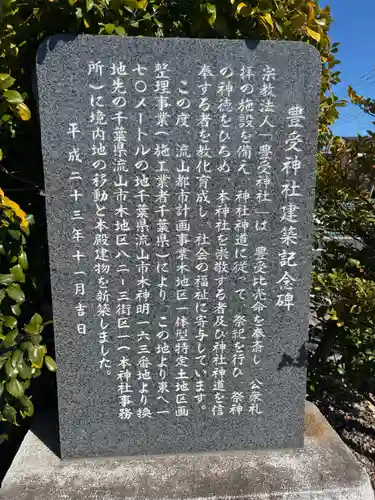 豊受神社建築記念碑
宗教法人「豊受神社」は 豊受比売命を奉斎し 公衆礼
拝の施設を備え 神社神道に従って 祭祀を行ひ 祭神
の神徳をひろめ 本神社を崇敬する者及び神道を信
奉する者を教化育成し 社会の福祉に寄与しています。
この度 流山都市計画事業木地区一体型特定土地区画
整理事業(施工業者千葉県)により この地より東へ一
七〇メートルの地千葉県流山市木神明一六三番地より換
地先の千葉県流山市木地区八二ー三街区一(本神社事務
所)に境内地の移動と本殿建物を新築しました。
平成二十三年十一月吉日